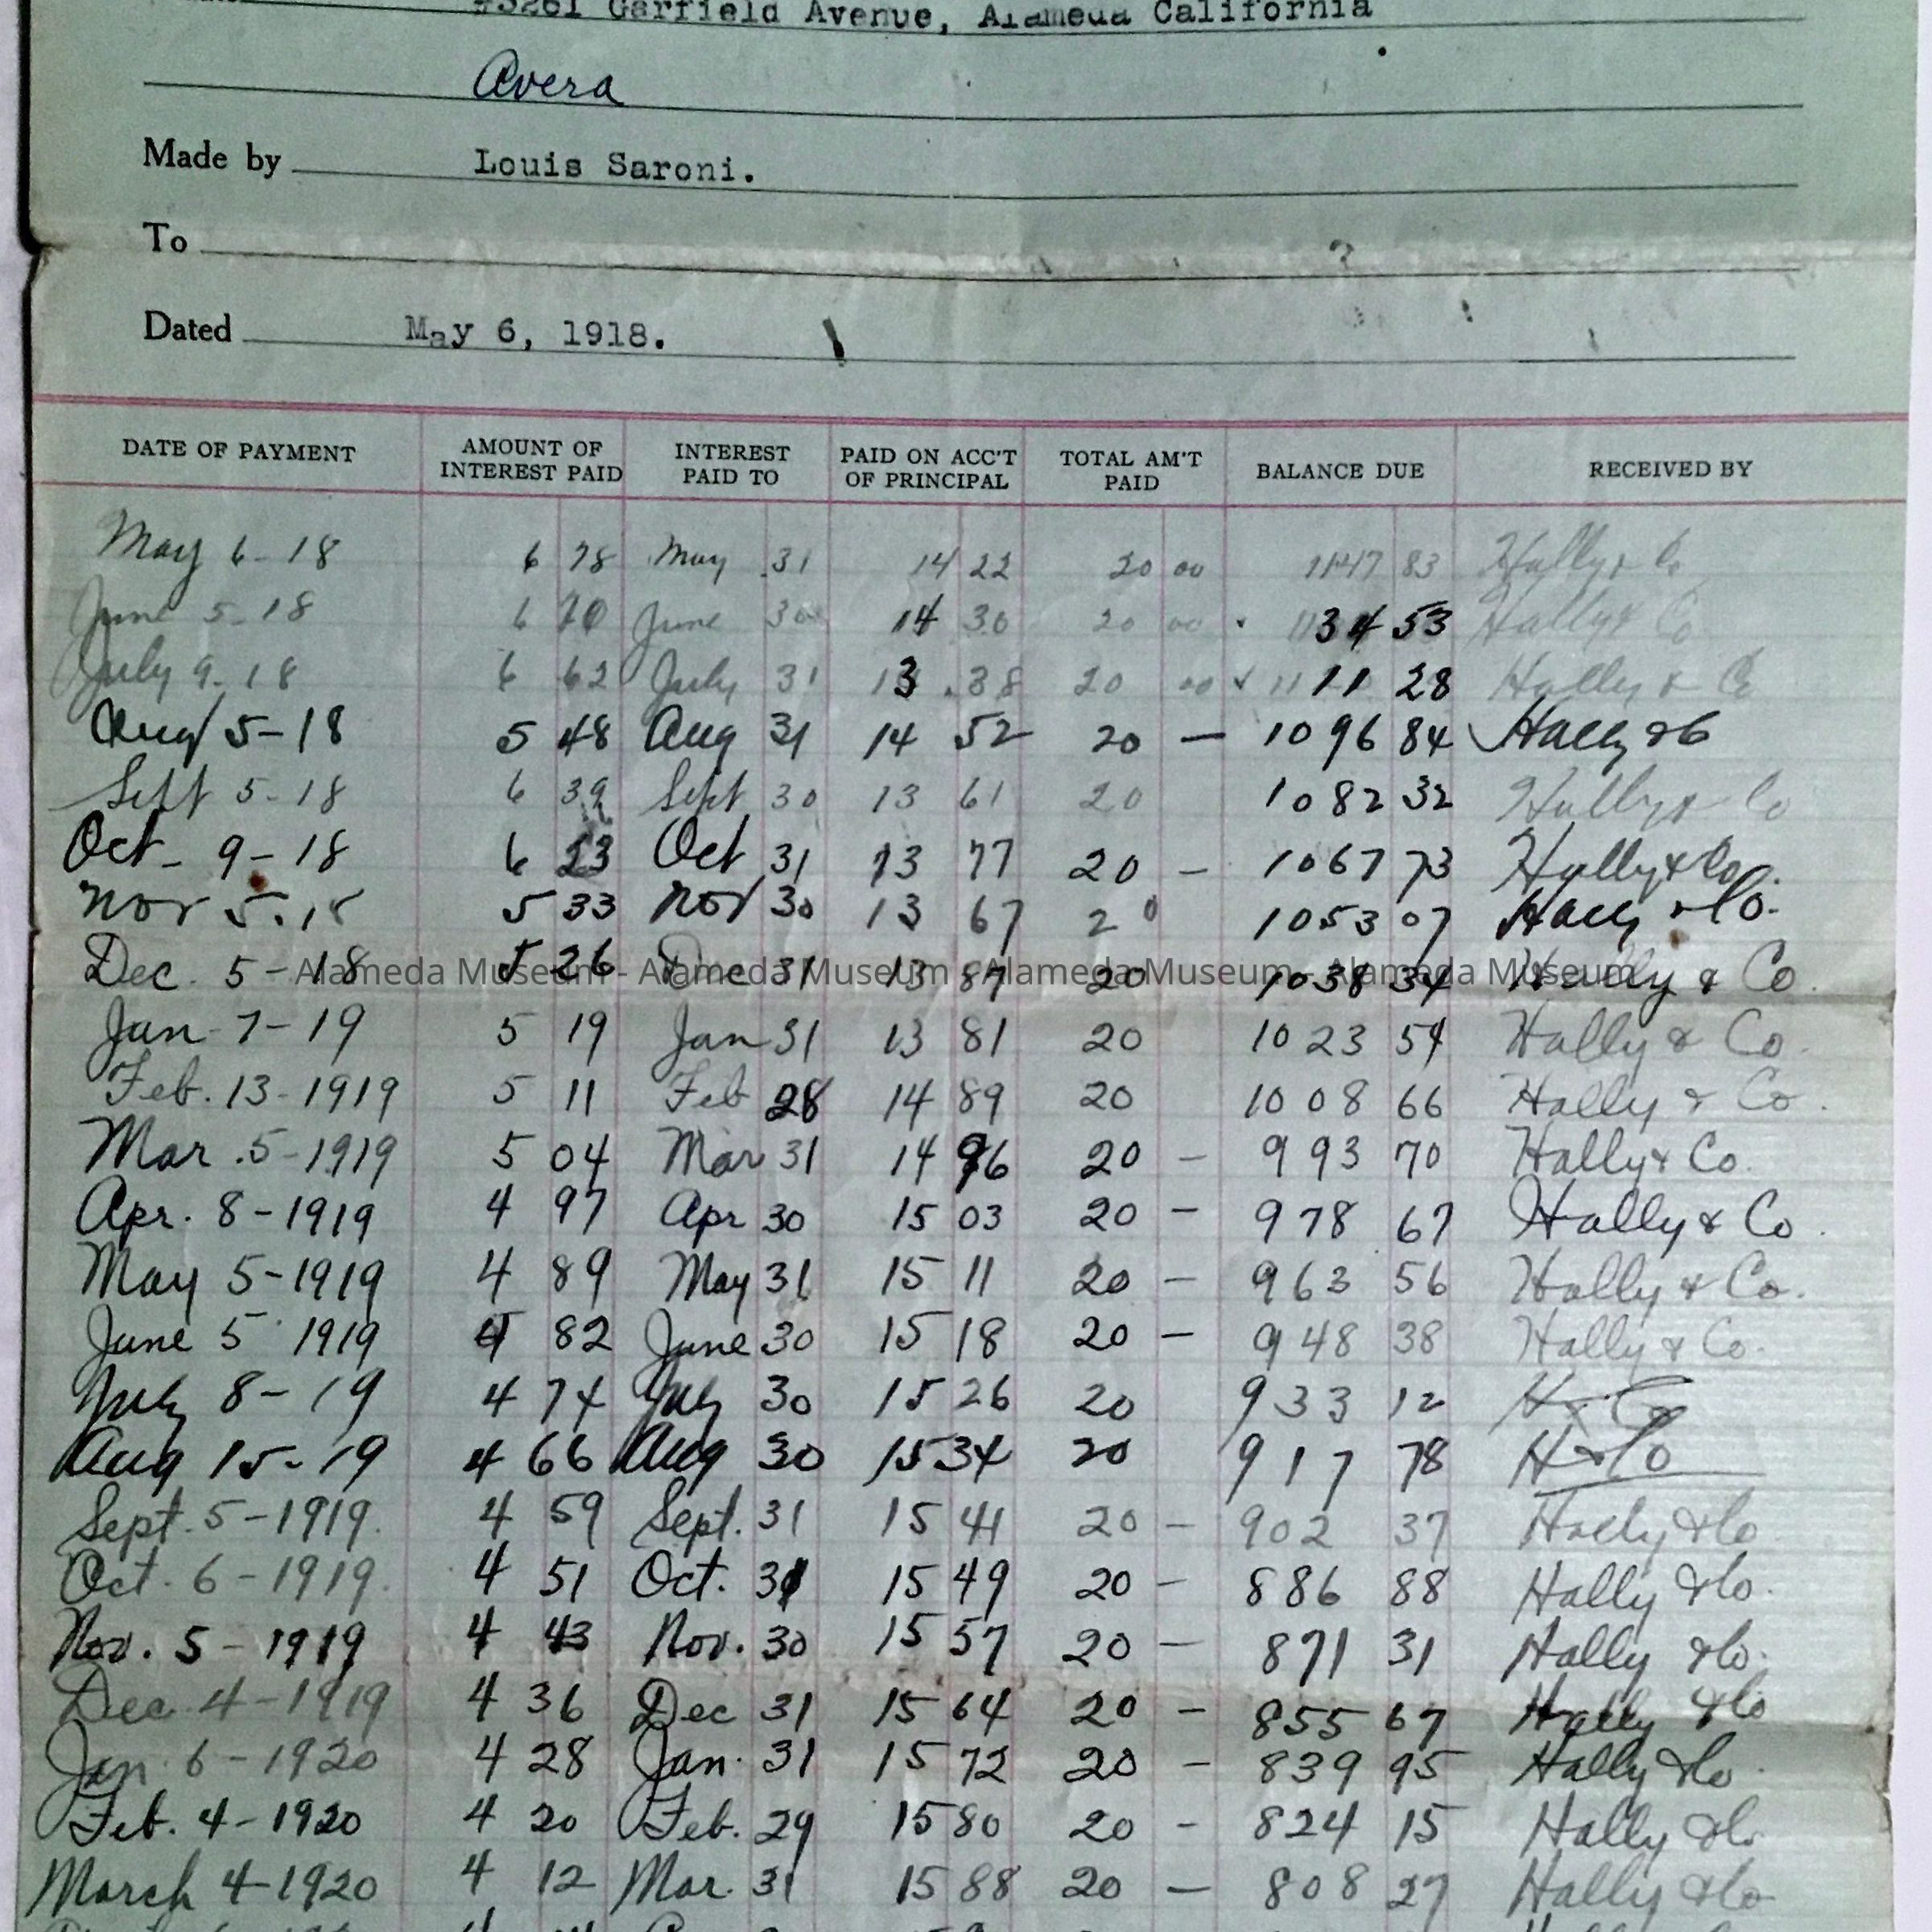 #3261 Garfield Avenue, Alameda California
Avera
Made by Louis Saroni.
To
Dated May 6, 1918.
DATE OF PAYMENT AMOUNT OF INTEREST PAID INTEREST PAID TO PAID ON ACC'T OF PRINCIPAL TOTAL AM'T PAID BALANCE DUE RECEIVED BY
May 6-18 6 78 May 31 14 22 20 00 1147 83 Hally & Co
June 5-18 6 70 June 30 14 30 20 00 1134 53 Hally & Co
July 9-18 6 62 July 31 13 .38 20 00 1111 28 Hally & Co
Aug 5-18 5 48 Aug 31 14 52 20 — 1096 84 Hally & Co
Sept 5-18 6 39 Sept 30 13 61 20 1082 32 Hally & Co
Oct - 9-18 6 23 Oct 31 13 77 20 - 1067 73 Hally & Co.
Nov 5.18 5 33 Nov 30 13 67 20 1053 07 Hally & Co.
Dec. 5-18 5 26 Dec 31 13 87 20 1038 34 Hally & Co.
Alameda Museum - Alameda Museum - Alameda Museum - Alameda Museum
Jan 7-19 5 19 Jan 31 13 81 20 1023 54 Hally & Co.
Feb. 13-1919 5 11 Feb 28 14 89 20 1008 66 Hally & Co.
Mar. 5-1919 5 04 Mar 31 14 96 20 - 993 70 Hally & Co.
Apr. 8-1919 4 97 Apr 30 15 03 20 - 978 67 Hally & Co.
May 5-1919 4 89 May 31 15 11 20 - 963 56 Hally & Co.
June 5 1919 4 82 June 30 15 18 20 - 948 38 Hally & Co.
July 8-19 4 74 July 30 15 26 20 933 12 H & Co
Aug 15-19 4 66 Aug 30 15 34 20 917 78 H & Co
Sept. 5-1919. 4 59 Sept. 31 15 41 20 - 902 37 Hally & Co
Oct. 6-1919. 4 51 Oct. 31 15 49 20 - 886 88 Hally & Co.
Nov. 5-1919 4 43 Nov. 30 15 57 20 - 871 31 Hally & Co.
Dec. 4-1919 4 36 Dec 31 15 64 20 - 855 67 Hally & Co
Jan. 6-1920 4 28 Jan. 31 15 72 20 - 839 95 Hally & Co.
Feb. 4-1920 4 20 Feb. 29 15 80 20 - 824 15 Hally & Co.
March 4-1920 4 12 Mar. 31 15 88 20 — 808 27 Hally & Co